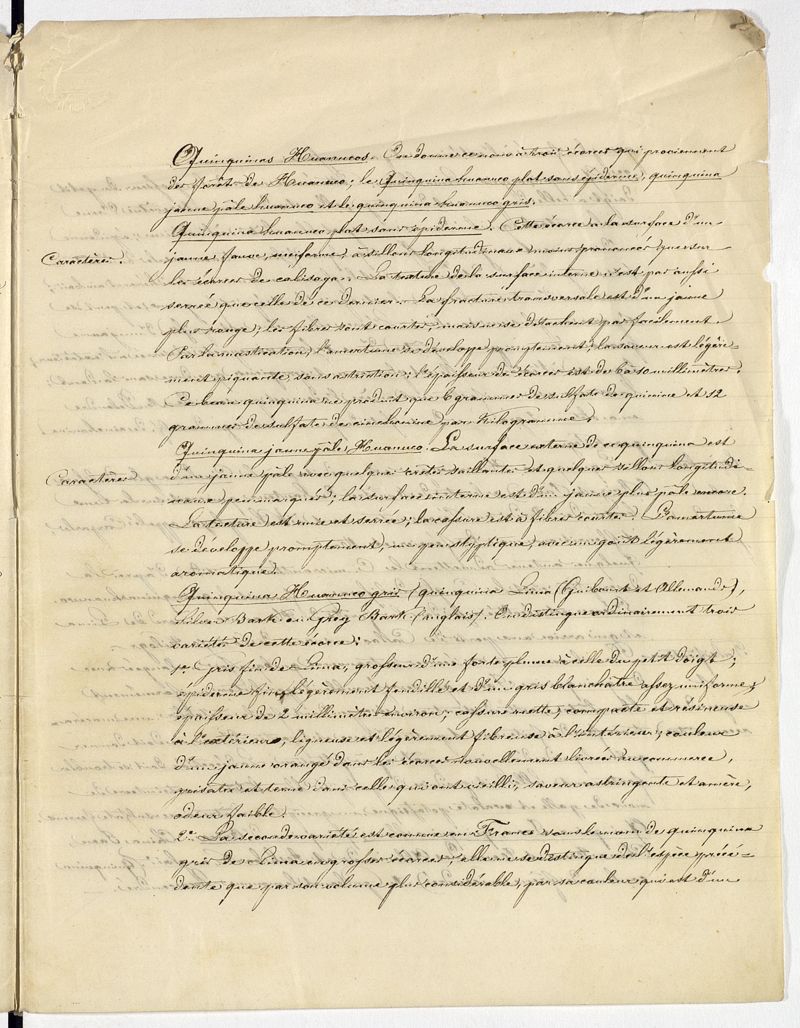 Quinquinas Huanucos. On donne ce nom à trois écorces qui proviennent
des forêts de Huanuco; le Quinquina huanuco plat sans épiderme, quinquina
jaune pâle huanuco et le quinquina huanuco gris.
Quinquina huanuco plat sans épiderme. Cette écorce a la surface d'un
Caractères.
jaune fauve, uniforme, à sillons longitudinaux moins prononcés que sur
les écorces de calisaya. La texture de la surface interne n'est pas aussi
serrée que celle de ces dernier. La fracture transversale est d'un jaune
plus rouge; les fibres sont courtes mais ne se détachent pas facilement.
Par la mastication, l'amertume se développe promptement; la saveur est légère-
ment piquante, sans astriction; l'épaisseur de l'écorce est de 6 à 10 millimètres.
Ce beau quinquina ne produit que 6 grammes de sulfate de quinine et 12
grammes de sulfate de cinchonine par Kilogramme.
Quinquina jaune pâle Huanuco. La surface externe de ce quinquina est
Caractères
d'un jaune pâle avec quelques crêtes saillantes et quelques sillons longitudi-
naux peu marqués; la surface interne est d'un jaune plus pâle encore.
La texture est unie et serrée; la cassure est à fibres courtes. L'amertume
se développe promptement, un peu styptique, avec un goût légèrement
aromatique.
Quinquina Huanuco gris (quinquina Lima (Guibourt et Allemands),
silver Bark ou Grey Bark (anglais). On distingue ordinairement trois
variétés de cette écorce:
1º Gris fin de Lima, grosseur d'une forte plume à celle du petit doigt;
épiderme fin, légèrement fendillé et d'un gris blanchâtre assez uniforme;
épaisseur de 2 millimètres environ; cassure nette, compacte et résineuse
à l'extérieur, ligneuse et légèrement fibreuse à l'intérieur; couleur
d'un jaune orangé dans les écorces nouvellement livrées au commerce,
grisatre et terne dans celles qui ont vieilli; saveur astringente et amère,
odeur faible.
2º La seconde variété est connue en France sous le nom de quinquina
gris de Lima en grosses écorces; elle ne se distingue de l'espèce précé-
dente que par son volume plus considérable, par sa couleur qui est d'un